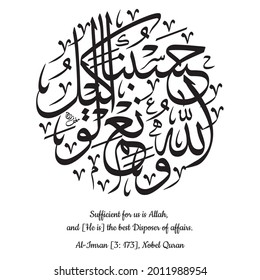 حسبنا الله ونعم الوكيل
Sufficient for us is Allah,
and [He is] the best Disposer of affairs.
Al-Imran [3: 173], Nobel Quran
shutterstock.com · 2011988954